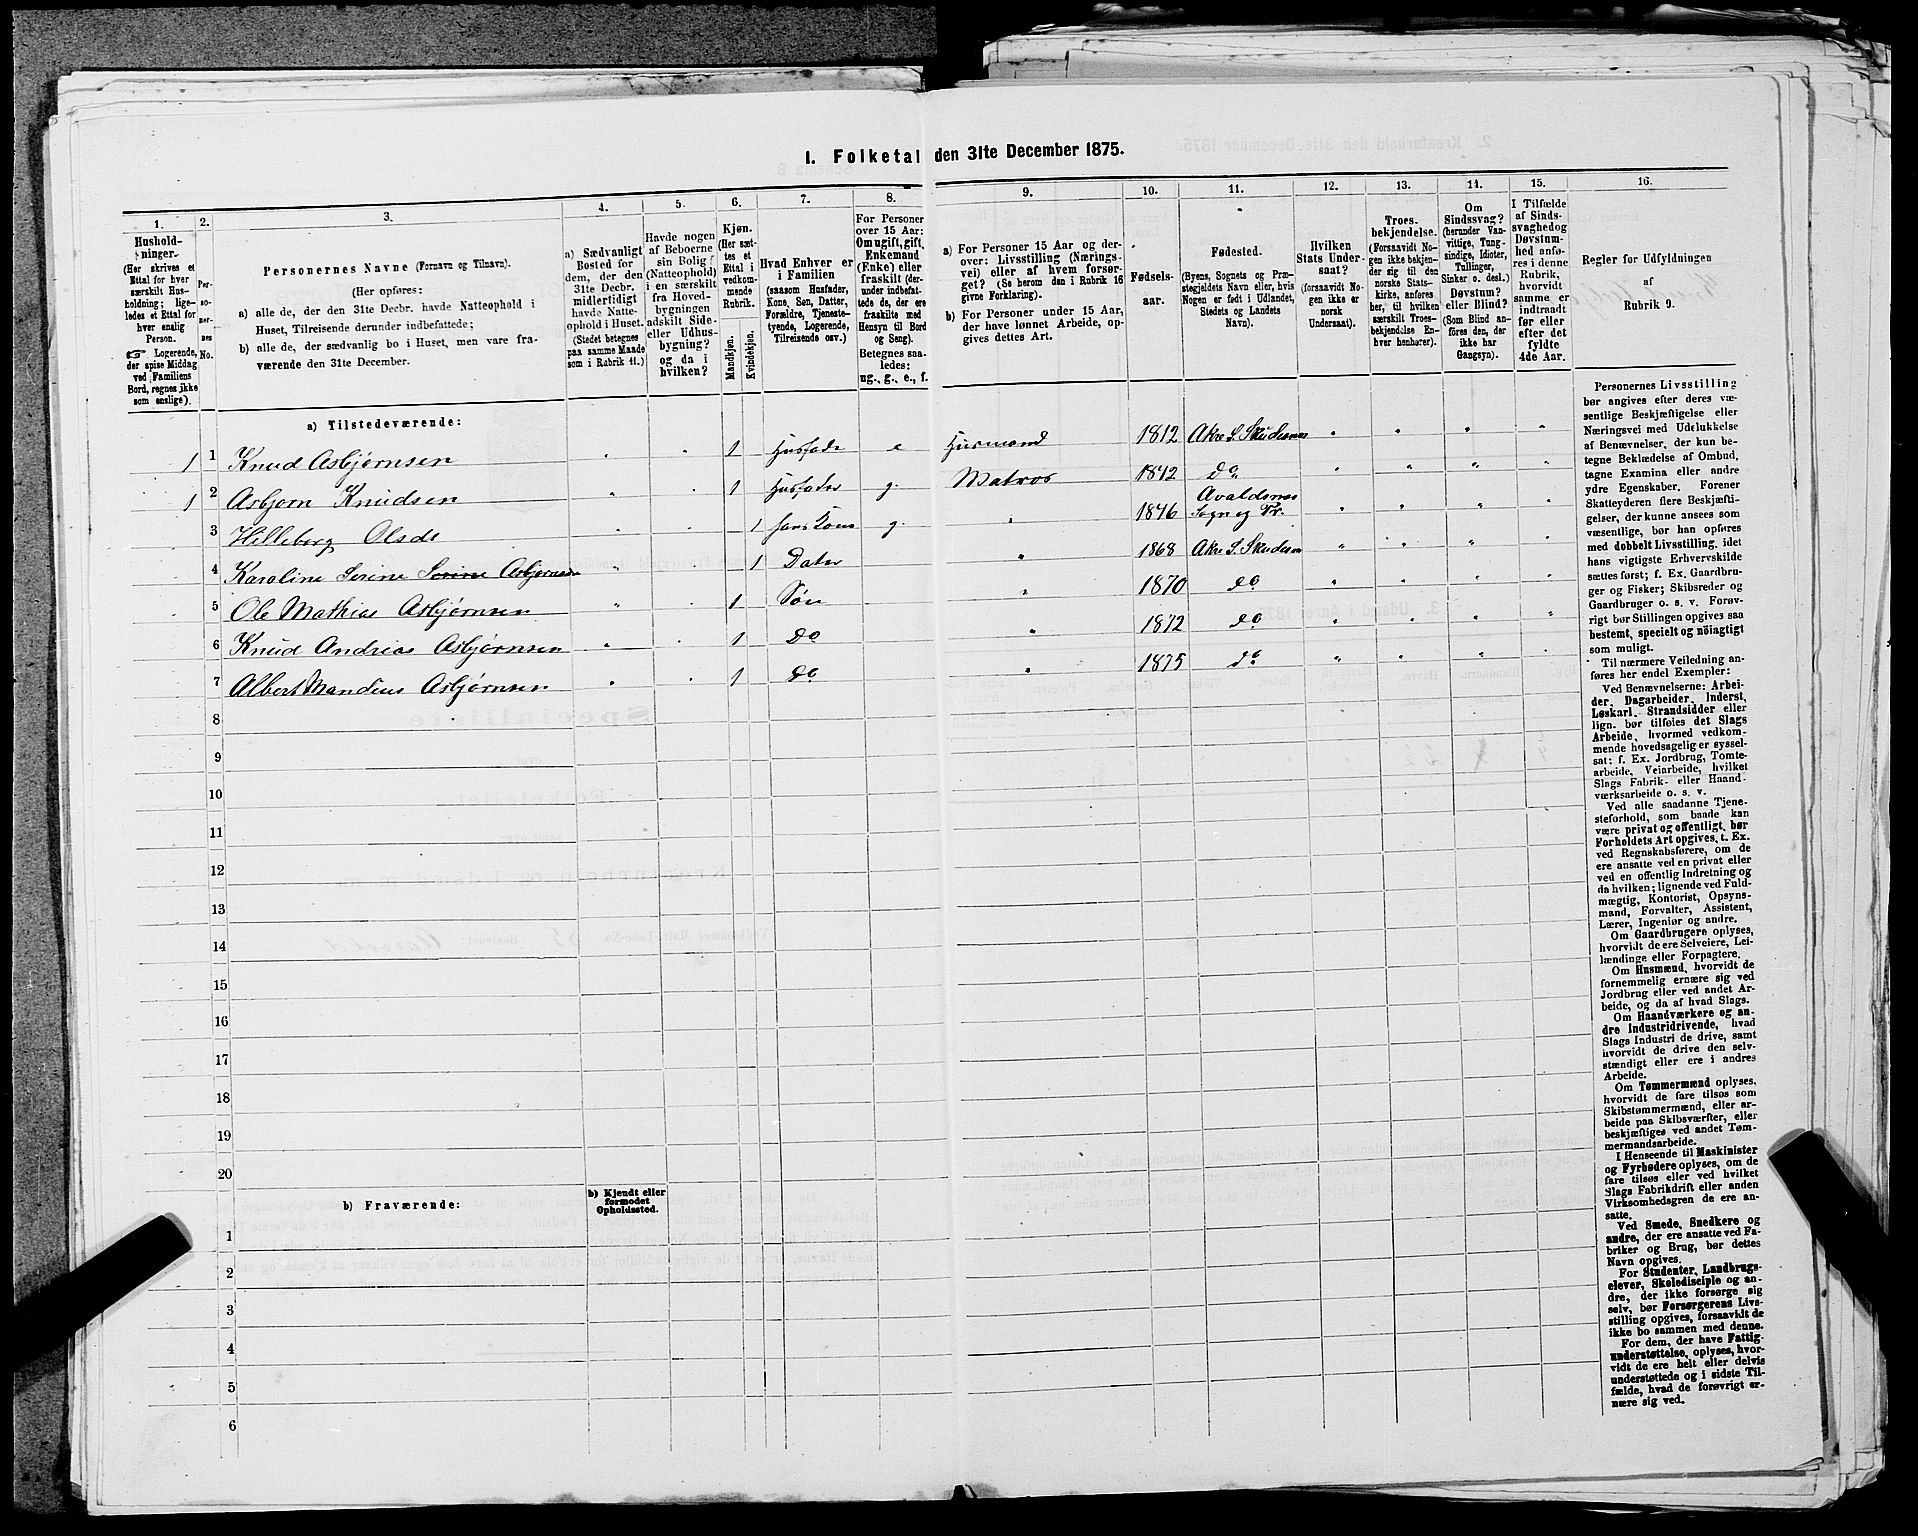 I. Folketal den 31te December 1875.
1.
2.
3.
4.
5.
6.
7.
8.
9.
10.
11.
12.
13.
14.
15.
16.
Hushold-
ninger.
(Her skrives et
Ettal for hver
særskilt Hus-
holdning; lige-
ledes et Ettal for
hver enslig
Person.
☞ Logerende,
der spise Middag
ved Familiens
Bord, regnes ikke
som enslige).
Per-
so-
ner-
nes
No.
Personernes Navne (Fornavn og Tilnavn).
(Her opføres:
a) alle de, der den 31te Decbr. havde Natteophold i
Huset, Tilreisende derunder indbefattede;
b) alle de, der sædvanlig bo i Huset, men vare fra-
værende den 31te December.
a) Sædvanligt
Bosted for
dem, der den
31te Decbr.
midlertidigt
havde Natte-
ophold i Huset.
(Stedet betegnes
paa samme Maade
som i Rubrik 11.)
Havde nogen
af Beboerne
sin Bolig
(Natteophold)
i en særskilt
fra Hoved-
bygningen
adskilt Side-
eller Udhus-
bygning?
og da i
hvilken?
Kjøn.
(Her sæt-
tes et
Ettal i
vedkom-
mende
Rubrik.
Mandkjøn.
Kvindekjøn.
Hvad Enhver er
i Familien
(saasom Husfader,
Kone, Søn, Datter,
Forældre, Tjeneste-
tyende, Logerende,
Tilreisende osv.)
For Personer
over 15 Aar:
Om ugift, gift,
Enkemand
(Enke) eller
fraskilt (der-
under indbefat-
tede de, der ere
fraskilte med
Hensyn til Bord
og Seng).
Betegnes saa-
ledes:
ug., g., e., f.
a) For Personer 15 Aar og der-
over: Livsstilling (Nærings-
vei) eller af hvem forsør-
get? (Se herom den i Rubrik 16
givne Forklaring).
b) For Personer under 15 Aar,
der have lønnet Arbeide, op-
gives dettes Art.
Fødsels-
aar.
Fødested.
(Byens, Sognets og Præ-
stegjeldets Navn eller, hvis
Nogen er født i Udlandet,
Stedets og Landets
Navn).
Hvilken
Stats Under-
saat?
(forsaavidt No-
gen ikke er
norsk
Undersaat).
Troes-
bekjendelse.
(Forsaavidt No-
gen ikke bekjen-
der sig til den
norske Stats-
kirke, anføres
her, til hvilken
særskilt Troes-
bekjendelse En-
hver henhører).
Om
Sindssvag?
(herunder Van-
vittige, Tung-
sindige, Idioter,
Tullinger,
Sinker o. desl.)
Døvstum?
eller Blind?
(Som Blind an-
føres den, der
ikke har
Gangsyn).
I Tilfælde
af Sinds-
svaghed og
Døvstum-
hed anfø-
res i denne
Rubrik,
hvorvidt
samme er
indtraadt
før eller
efter det
fyldte
4de Aar.
Regler for Udfyldningen
af
Rubrik 9.
a) Tilstedeværende:
1 1 Knud Asbjørnsen 1 Husfader e Husmand 1812 Akre S. Skudesnes
1 2 Asbjørn Knudsen 1 Husfader g. Matros 1842 do
3 Hilleborg Olsdt 1 hans Kone g. 1846 Avaldsnes
Sogn og Pr.
4 Karoline Serine Serine Asbjørnsen 1 Dater 1868 Akre S. Skudesn
5 Ole Mathias Asbjørnsen 1 Søn 1870 do
6 Knud Andreas Asbjørnsen 1 Do 1872 do
7 Albert Mandius Asbjørnsen 1 do 1875 do
8
9
10
11
12
13
14
15
16
17
18
19
20
b) Fraværende:
b) Kjendt eller
formodet
Opholdssted.
1
2
3
4
5
6
Personernes Livsstilling
bør angives efter deres væ-
sentlige Beskjæftigelse eller
Næringsvei med Udelukkelse
af Benævnelser, der kun be-
tegne Beklædelse af Ombud,
tagne Examina eller andre
ydre Egenskaber. Forener
Skatteyderen flere Beskjæfti-
gelser, der kunne ansees som
væsentlige, bør han opføres
med dobbelt Livsstilling, idet
hans vigtigste Erhvervskilde
sættes først; f. Ex. Gaardbru-
ger og Fisker; Skibsreder og
Gaardbruger o. s. v. Forøv-
rigt bør Stillingen opgives saa
bestemt, specielt og nöiagtigt
som muligt.
Til nærmere Veiledning an-
føres her endel Exempler:
Ved Benævnelserne: Arbei-
der, Dagarbeider, Inderst,
Løskarl, Strandsidder eller
lign. bør tilføies det Slags
Arbeide, hvormed vedkom-
mende hovedsagelig er syssel-
sat; f. Ex. Jordbrug, Tomte-
arbeide, Veiarbeide, hvilket
Slags Fabrik- eller Haand-
værksarbeide o. s. v.
Ved alle saadanne Tjene-
steforhold, som baade kan
være privat og offentligt, bør
Forholdets Art opgives, t. Ex.
ved Regnskabsførere, om de
ere ansatte ved en privat eller
ved en offentlig Indretning og
da hvilken; lignende ved Fuld-
mægtig, Kontorist, Opsyns-
mand, Forvalter, Assistent,
Lærer, Ingeniør og andre.
Om Gaardbrugere oplyses,
hvorvidt de ere Selveiere, Lei-
lændinge eller Forpagtere.
Om Husmænd, hvorvidt de
fornemmelig ernære sig ved
Jordbrug eller ved andet Ar-
beide, og da af hvad Slags.
Om Haandværkere og an-
dre Industridrivende, hvad
Slags Industri de drive, samt
hvorvidt de drive den selv-
stændigt eller ere i andres
Arbeide.
Om Tømmermænd oplyses,
hvorvidt de fare tilsøs som
Skibstømmermænd, eller ar-
beide paa Skibsværfter, eller
beskjæftiges ved andet Tøm-
mermandsarbeide.
I Henseende til Maskinister
og Fyrbødere oplyses, om de
fare tilsøs eller ved hvilket
Slags Fabrikdrift eller anden
Virksomhedsgren de ere an-
satte.
Ved Smede, Snedkere og
andre, der ere ansatte ved Fa-
briker og Brug, bør dettes
Navn opgives.
For Studenter, Landbrugs-
elever, Skoledisciple og an-
dre, der ikke forsørge sig
selv, bør Forsørgerens Livs-
stilling opgives, forsaavidt de
ikke bo sammen med denne.
For dem, der have Fattig-
understøttelse, oplyses, hvor-
vidt de ere helt eller delvis
understøttede og i sidste Til-
fælde, hvad de forøvrigt er-
nære sig ved.